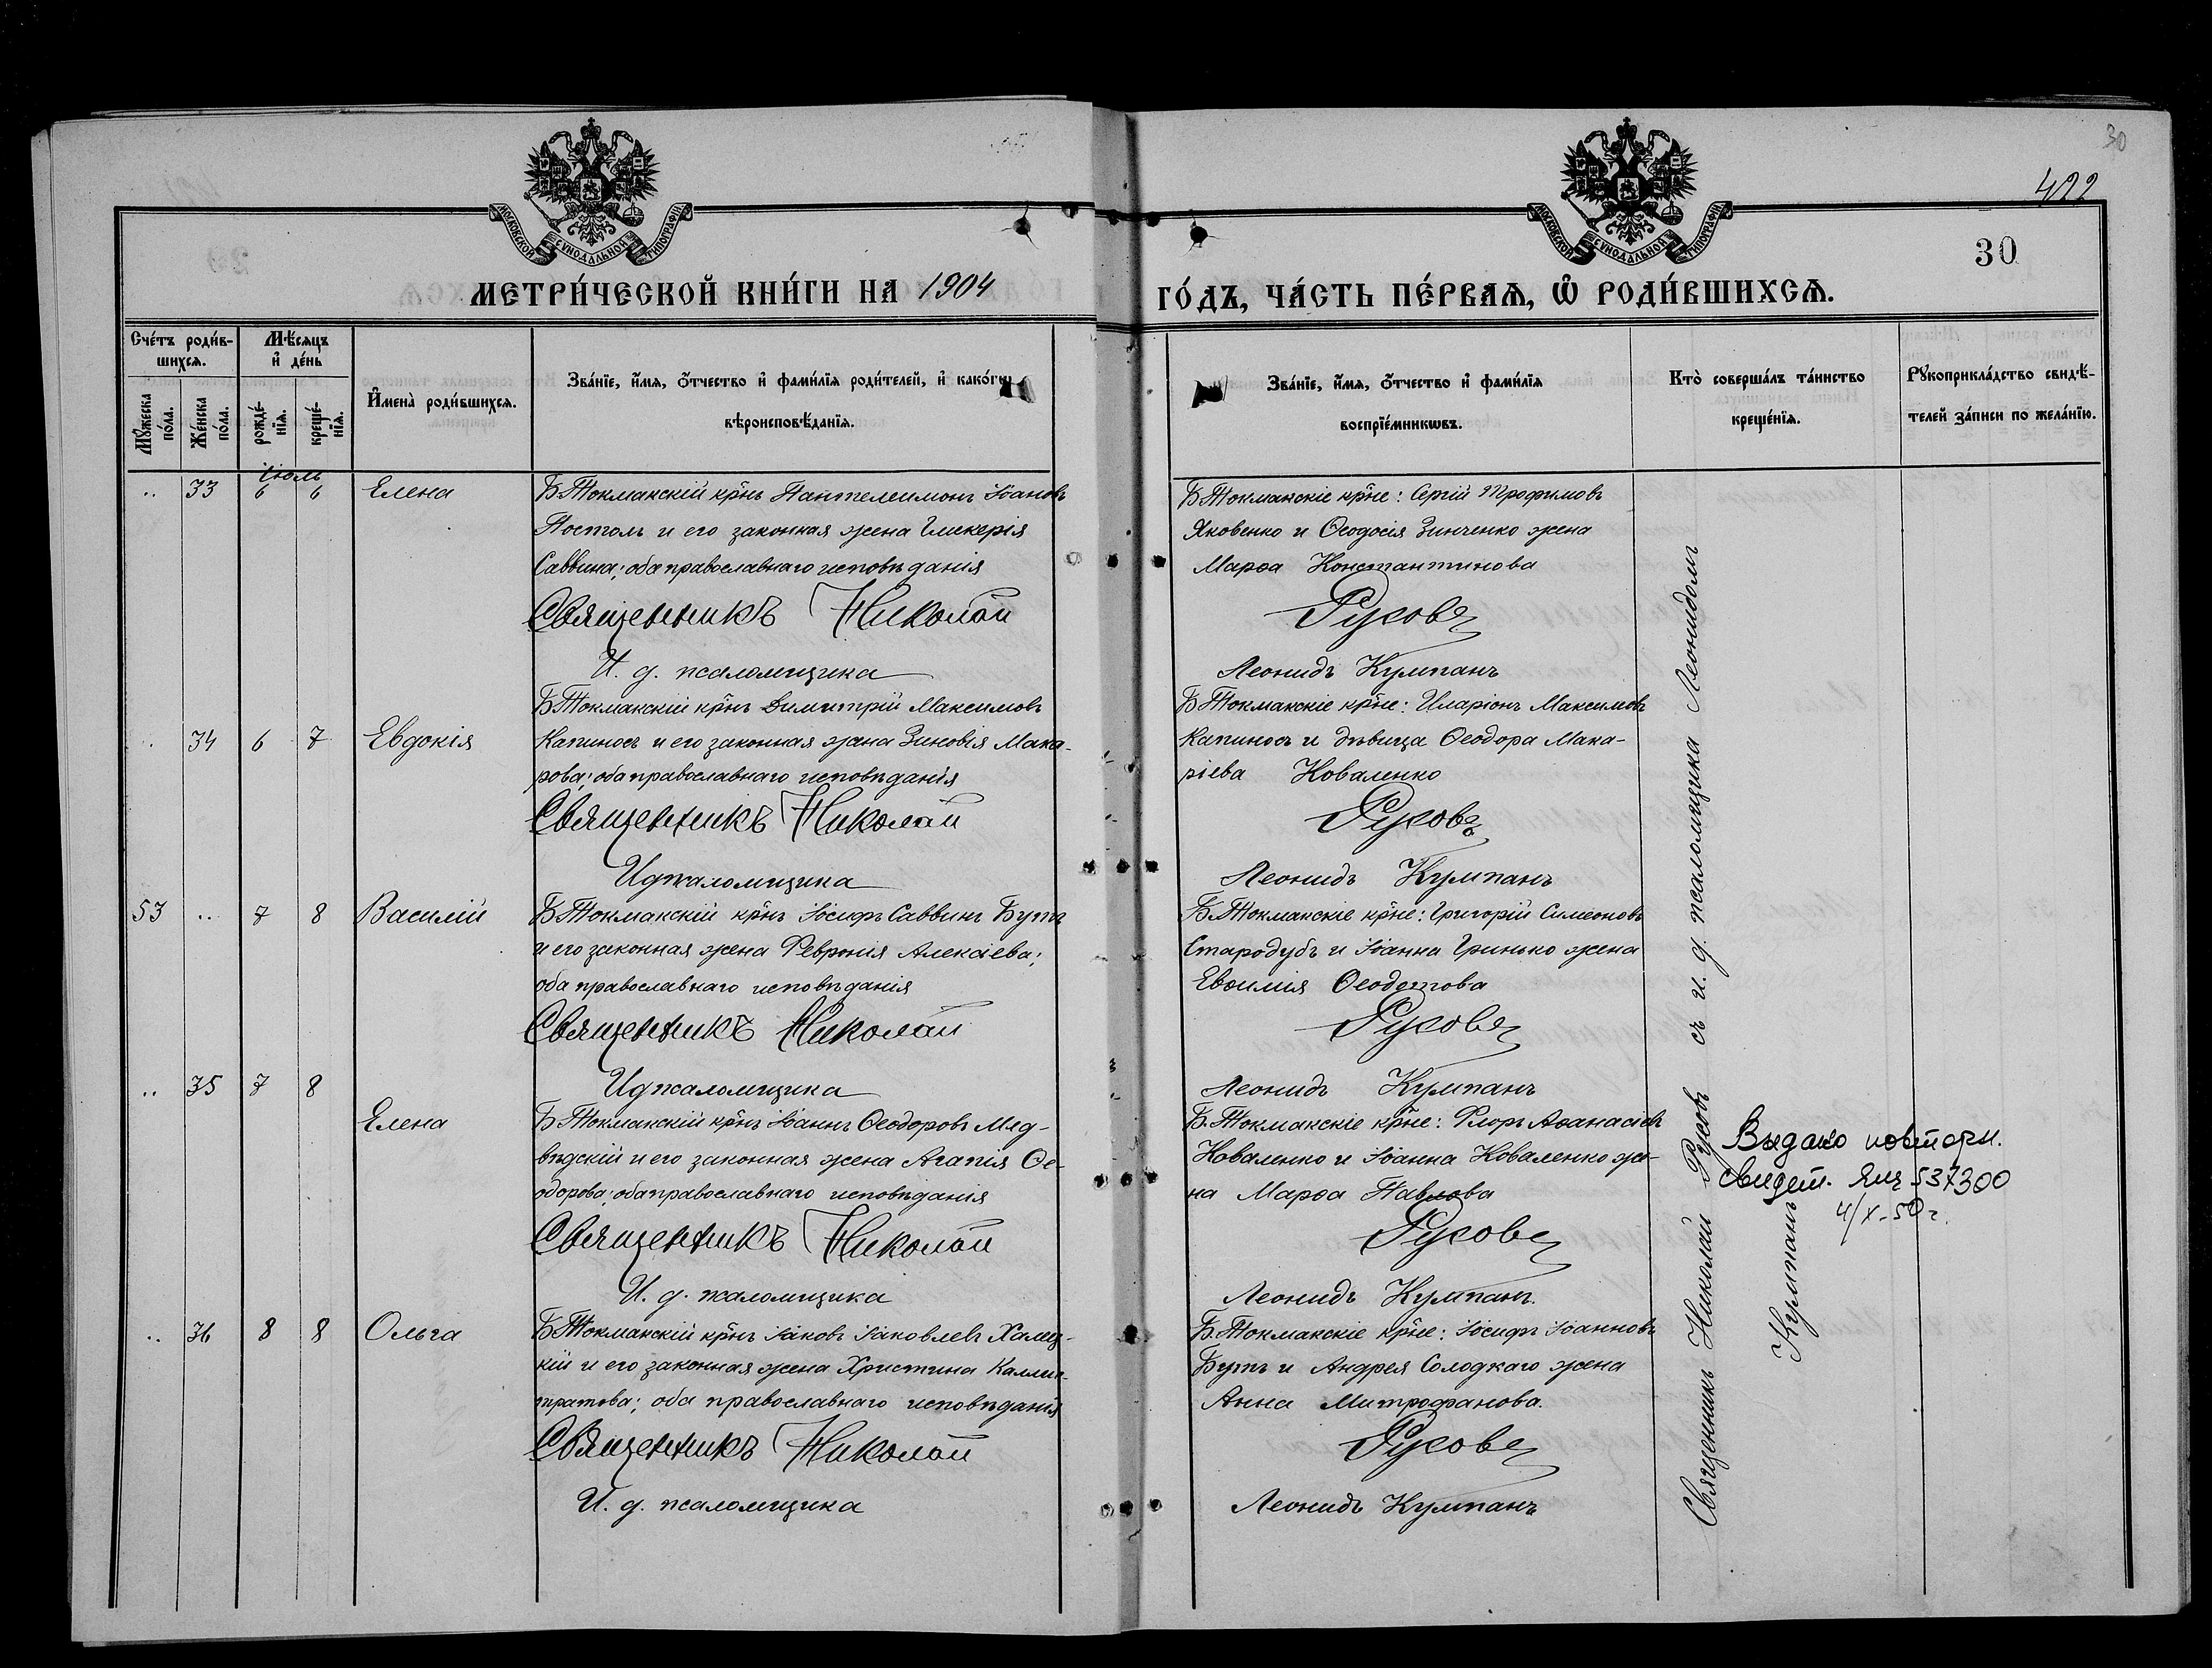 30
422
МОСКОВСКОЙ СѴНОДАЛЬНОЙ ТИПОГРАФІИ
МОСКОВСКОЙ СѴНОДАЛЬНОЙ ТИПОГРАФІИ
30
МЕТРИ́ЧЕСКОЙ КНИ́ГИ НА 1904
ГО́ДЪ, ЧА́СТЬ ПЕ́РВАѦ, Ѡ҆ РОДИ́ВШИХСѦ.
Сче́тъ роди́в-
шихсѧ.
Мꙋ́жеска по́ла.
Же́нска по́ла.
Мѣ́сѧцъ
и҆ де́нь
рожде́-
нїѧ.
креще́-
нїѧ.
И҆мена̀ роди́вшихсѧ.
Зва́нїе, и҆́мѧ, ѻ҆́тчество и҆ фами́лїѧ роди́телей, и҆ како́гѡ
вѣроисповѣ́данїѧ.
Зва́нїе, и҆́мѧ, ѻ҆́тчество и҆ фами́лїѧ
воспрїе́мникѡвъ.
Кто̀ соверша́лъ та́инство
креще́нїѧ.
Рꙋкоприкла́дство свидѣ́-
телей за́писи по жела́нїю.
Іюль
.. 33 6 6 Елена
Б Токмакскій кр̃нъ Пантелеимонъ Іоановъ
Постолъ и его законная жена Гликерія
Саввина; оба православнаго исповѣданія
Священникъ Николай
И. д. псаломщика
Б Токмакскіе кр̃не: Сергій Трофимовъ
Яковенко и Ѳеодосія Зинченко жена
Марѳа Константинова
Русовъ
Леонидъ Кулпанъ
.. 34 6 7 Евдокія
Б Токмакскій кр̃нъ Димитрій Максимовъ
Капиносъ и его законная жена Зиновія Мака-
рова; оба православнаго исповѣданія
Священникъ Николай
И д псаломщика
Б Токмакскіе кр̃не: Иларіонъ Максимовъ
Капиносъ и дѣвица Ѳеодора Мака-
ріева Коваленко
Русовъ
Леонидъ Кулпанъ
53 .. 7 8 Василій
Б Токмакскій кр̃нъ Іосифъ Саввинъ Бутъ
и его законная жена Февронія Алексіева;
оба православнаго исповѣданія
Священникъ Николай
И д псаломщика
Б. Токмакскіе кр̃не: Григорій Симеоновъ
Стародубъ и Іоанна Гринько жена
Евѳимія Ѳеодотова
Русовъ
Леонидъ Кулпанъ
.. 35 7 8 Елена
Б Токмакскій кр̃нъ Іоаннъ Ѳеодоровъ Мяд-
вѣдскій и его законная жена Агапія Ѳе-
одорова; оба православнаго исповѣданія
Священникъ Николай
И. д. псаломщика
Б. Токмакскіе кр̃не: Флоръ Аѳанасіевъ
Коваленко и Іоанна Коваленко же-
на Марѳа Павлова
Русовъ
Леонидъ Кулпанъ.
.. 36 8 8 Ольга
Б Токмакскій кр̃нъ Іаковъ Іаковлевъ
кій и его законная жена Христина Каллис-
тратова; оба православнаго исповѣданія
Священникъ Николай
И. д. псаломщика
Б. Токмакскіе кр̃не: Іосифъ Іоанновъ
Бутъ и Андрея Солодкаго жена
Анна Митрофанова.
Русовъ
Леонидъ Кулпанъ
Священникъ Николай Русовъ съ и. д. псаломщика Леонидомъ
Кулпанъ
Выдано повторн.
свидет. 537300
4/X-50 г.